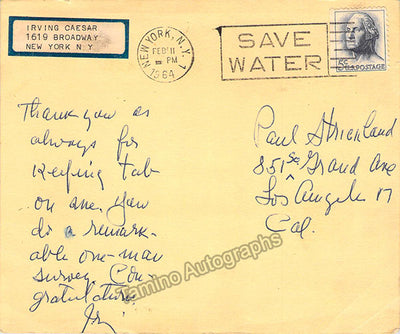 IRVING CAESAR
1619 BROADWAY
NEW YORK N Y
NEW YORK, N.Y. 1
FEB 11
PM
1964
SAVE
WATER
5c
U.S. POSTAGE
Thank you as
always for
keeping tab
on me. You
do a remark-
able one-man
survey Con-
gratulations
Irv
Paul Strickland
851 So Grand Ave
Los Angeles 17
Cal.
Tamino Autographs